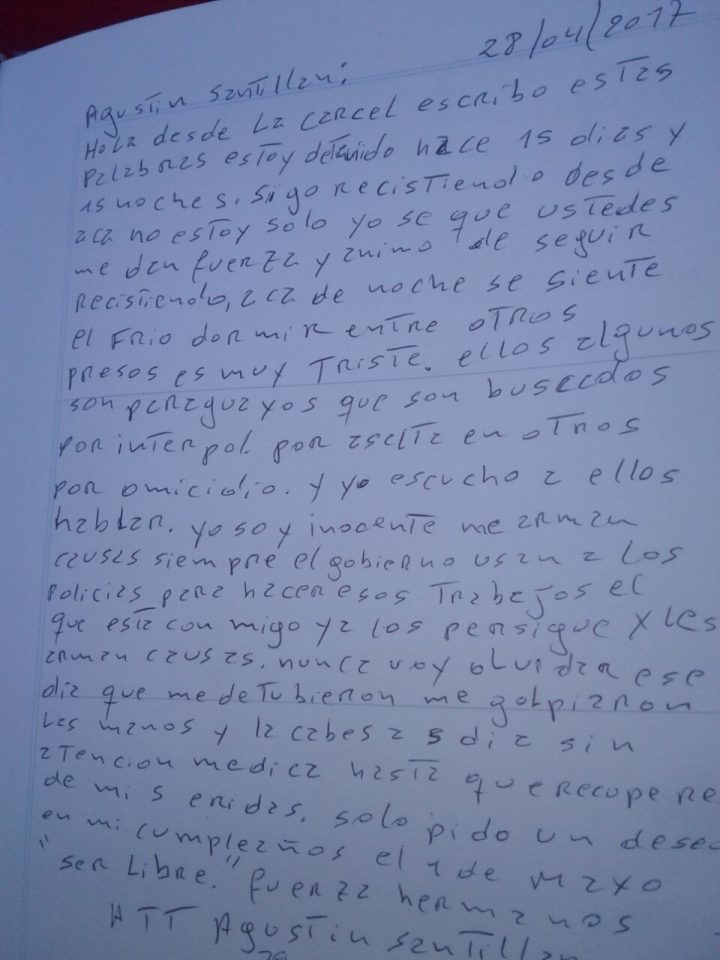 28/04/2017
Agustin Santillan:
Hola desde la carcel escribo estas
palabras estoy detenido hace 15 dias y
15 noches. Sigo recistiendo desde
aca no estoy solo yo se que ustedes
me dan fuerza y animo de seguir
recistiendo, aca de noche se siente
el frio dormir entre otros
presos es muy triste. ellos algunos
son paraguayos que son buscados
por interpol por asalta en otros
por omicidio. y yo escucho a ellos
hablar. yo soy inocente me arman
causas siempre el gobierno usan a los
policias para hacer esos trabajos el
que esta con migo ya los persigue y les
arman causas. nunca voy olvidar ese
dia que me detubieron me golpiaron
las manos y la cabesa 5 dia sin
atencion medica hasta que recupere
de mi s eridas. solo pido un deseo
en mi cumpleaños el 1 de mayo
"ser libre." fuerza hermanos
ATT Agustin Santillan